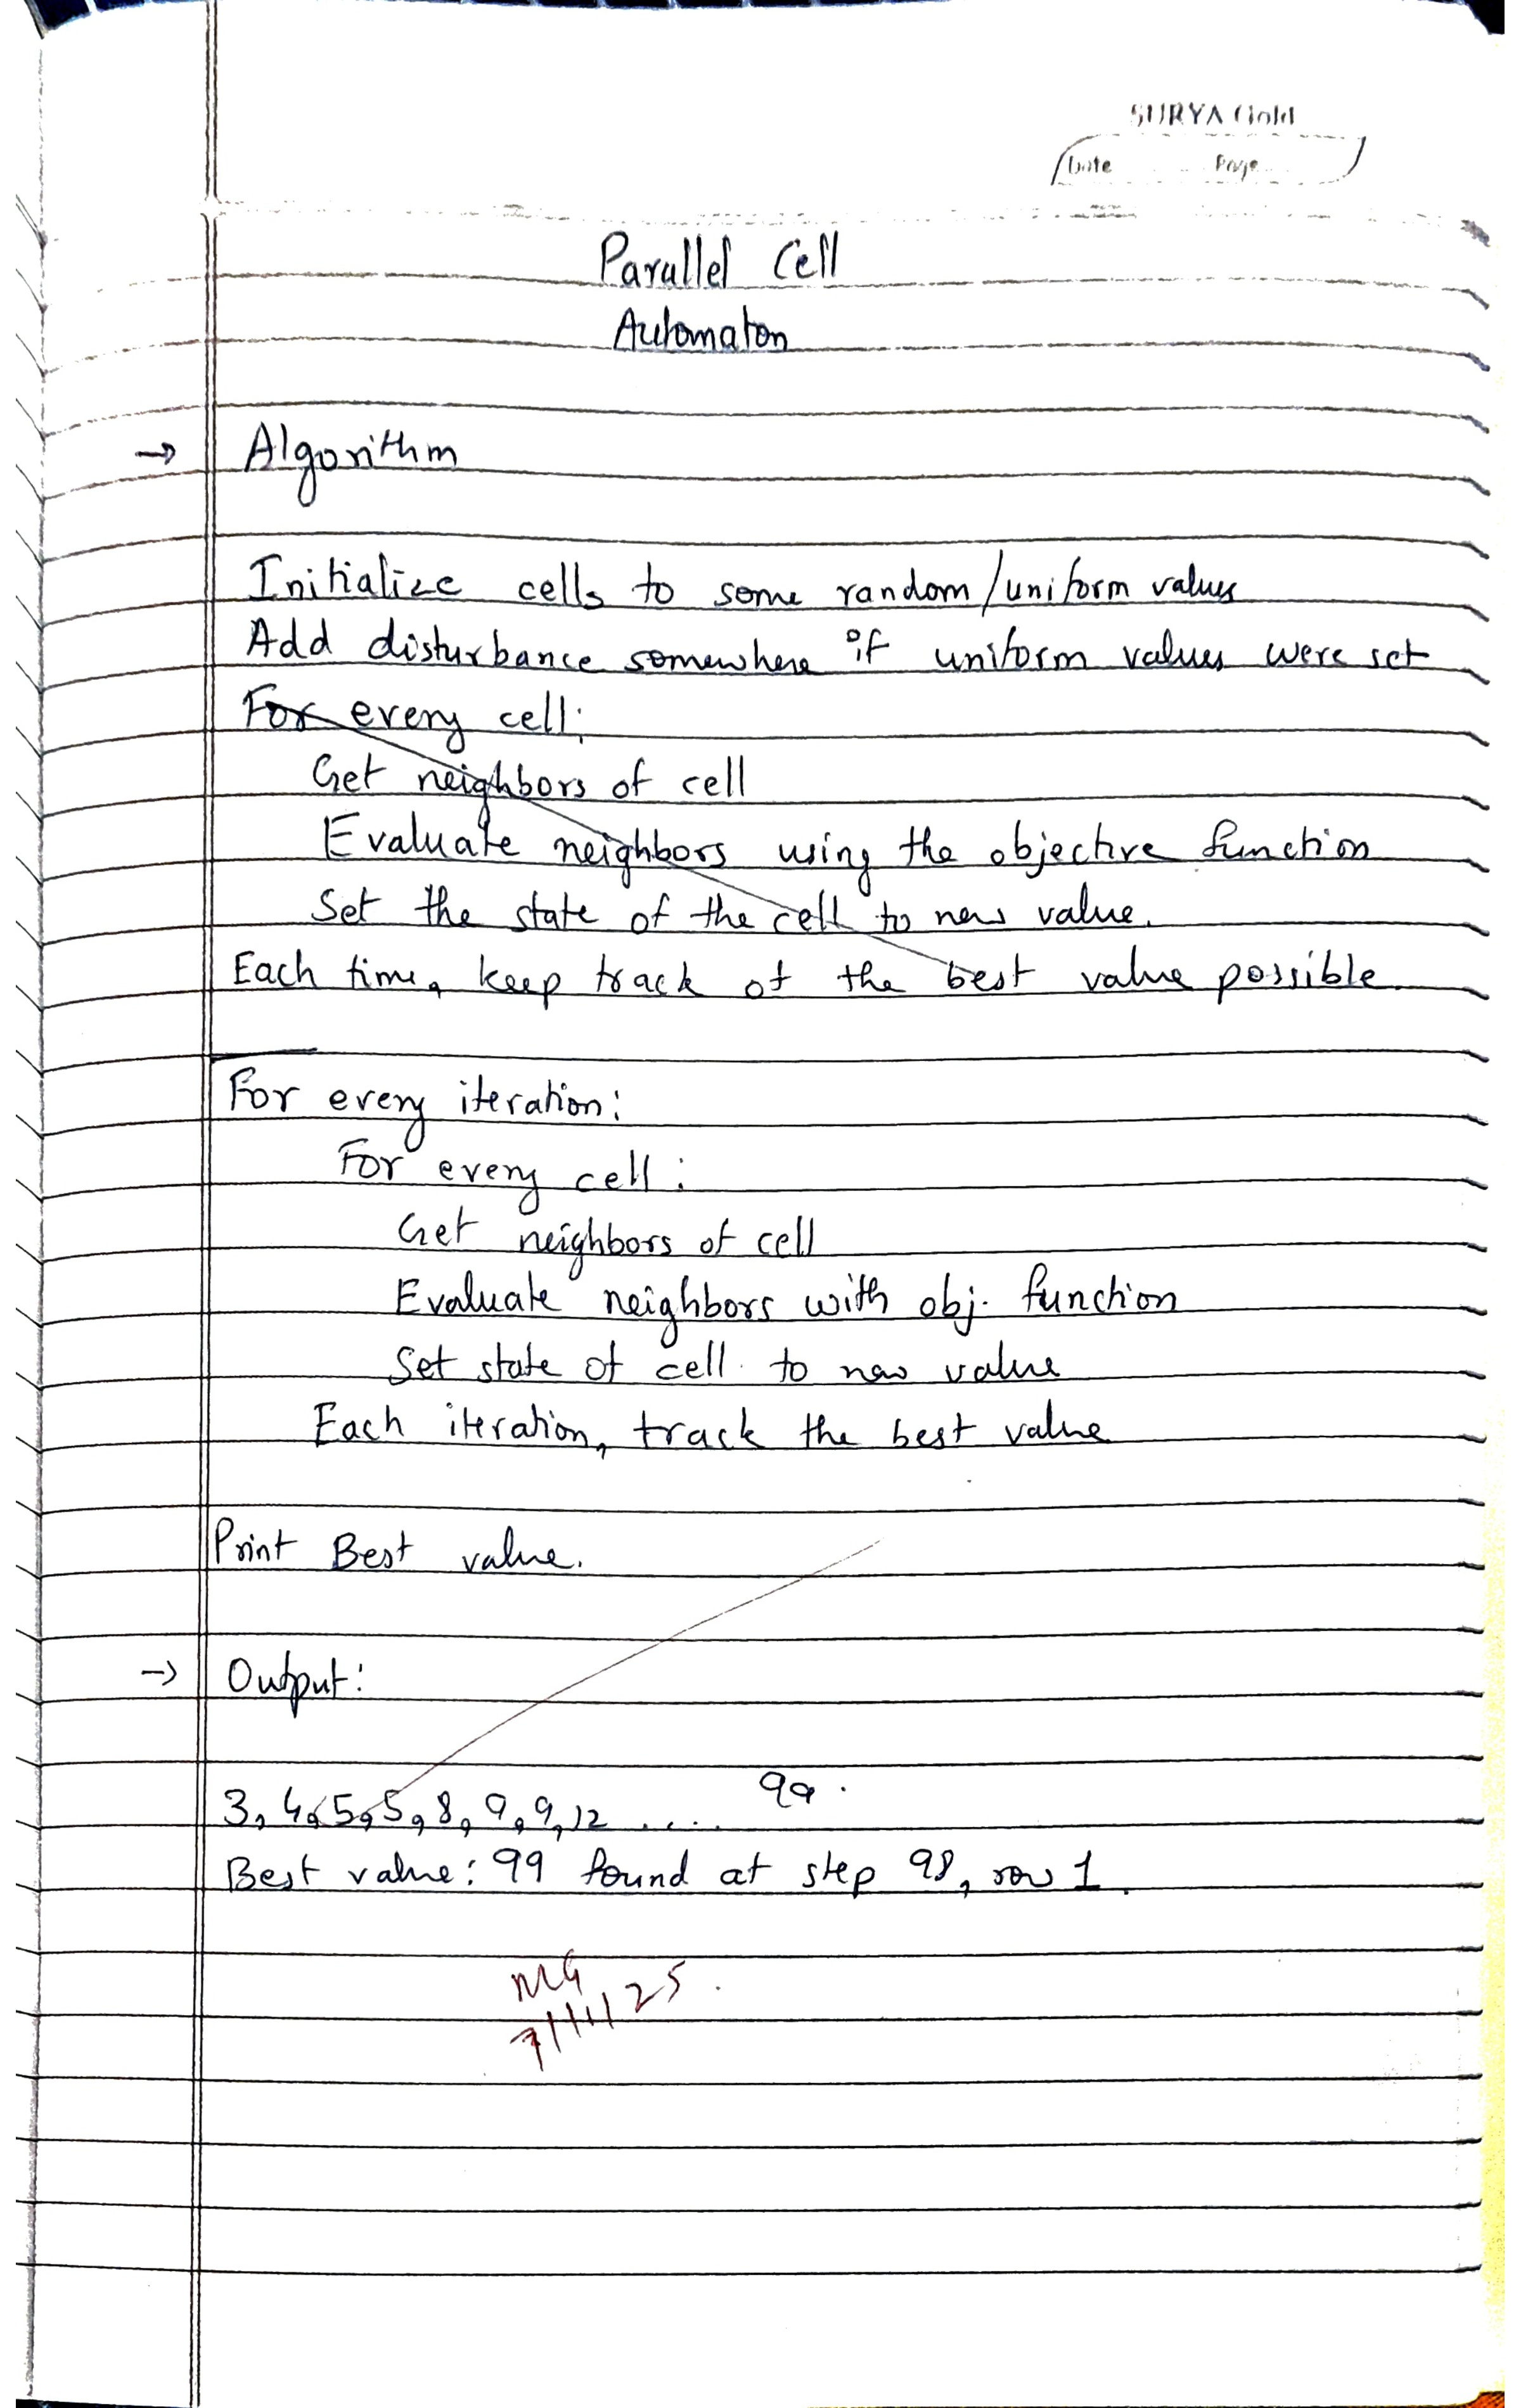 SURYA Gold
Date Page
Parallel Cell
Automaton
→ Algorithm
Initialize cells to some random/uniform values
Add disturbance somewhere if uniform values were set
For every cell:
Get neighbors of cell
Evaluate neighbors using the objective function
Set the state of the cell to new value.
Each time, keep track of the best value possible.
For every iteration:
For every cell:
Get neighbors of cell
Evaluate neighbors with obj. function
Set state of cell to new value
Each iteration, track the best value
Print Best value.
→ Output:
3, 4, 5, 5, 8, 9, 9, 12 .... 99.
Best value: 99 found at step 98, row 1.
7/11/25